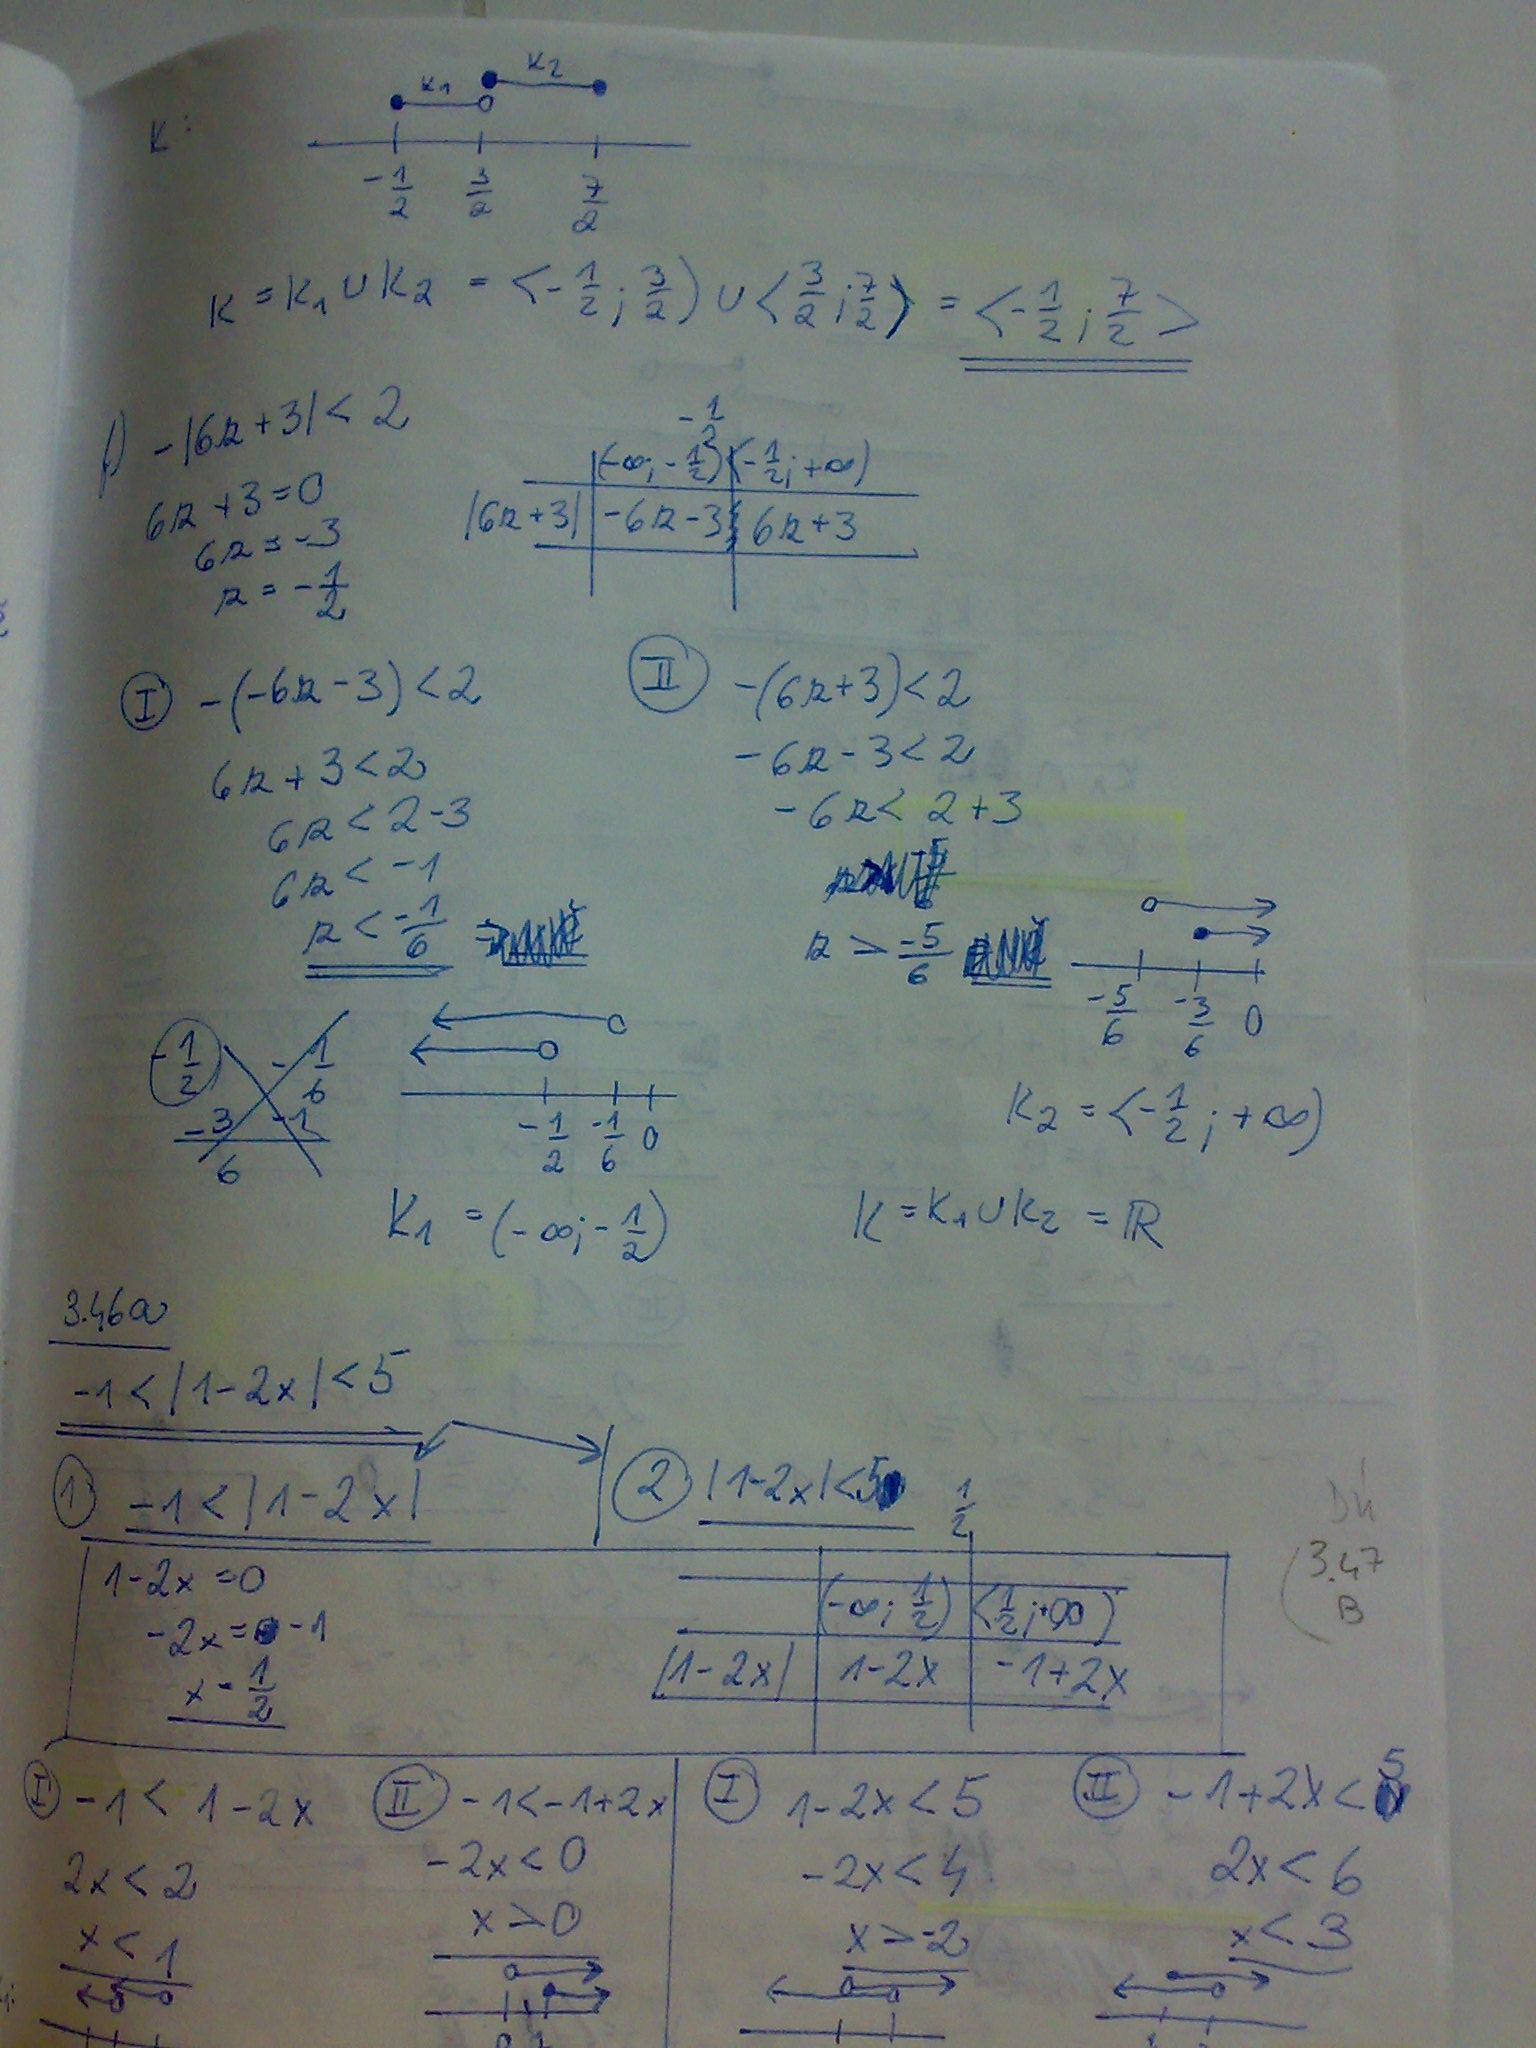 K:
K₁ K₂
-1/2 3/2 7/2
K = K₁ ∪ K₂ = <-1/2 ; 3/2) ∪ <3/2 ; 7/2> = <-1/2 ; 7/2>
f) -|6r+3| < 2
6r+3=0
6r=-3
r = -1/2
-1/2
(-∞; -1/2) <-1/2; +∞)
|6r+3| -6r-3 6r+3
I -(-6r-3) < 2
6r+3 < 2
6r < 2-3
6r < -1
r < -1/6
-1/2 -1/6
-3 -1
6
-1/2 -1/6 0
K₁ = (-∞; -1/2)
II -(6r+3) < 2
-6r-3 < 2
-6r < 2+3
r > -5/6
-5/6 -3/6 0
K₂ = <-1/2 ; +∞)
K = K₁ ∪ K₂ = ℝ
3.46a
-1 < |1-2x| < 5
1 -1 < |1-2x|
2 |1-2x| < 5
1-2x=0
-2x = -1
x = 1/2
1/2
(-∞; 1/2) <1/2; +∞)
|1-2x| 1-2x -1+2x
DÚ
3.47
B
I -1 < 1-2x
2x < 2
x < 1
II -1 < -1+2x
-2x < 0
x > 0
I 1-2x < 5
-2x < 4
x > -2
II -1+2x < 5
2x < 6
x < 3